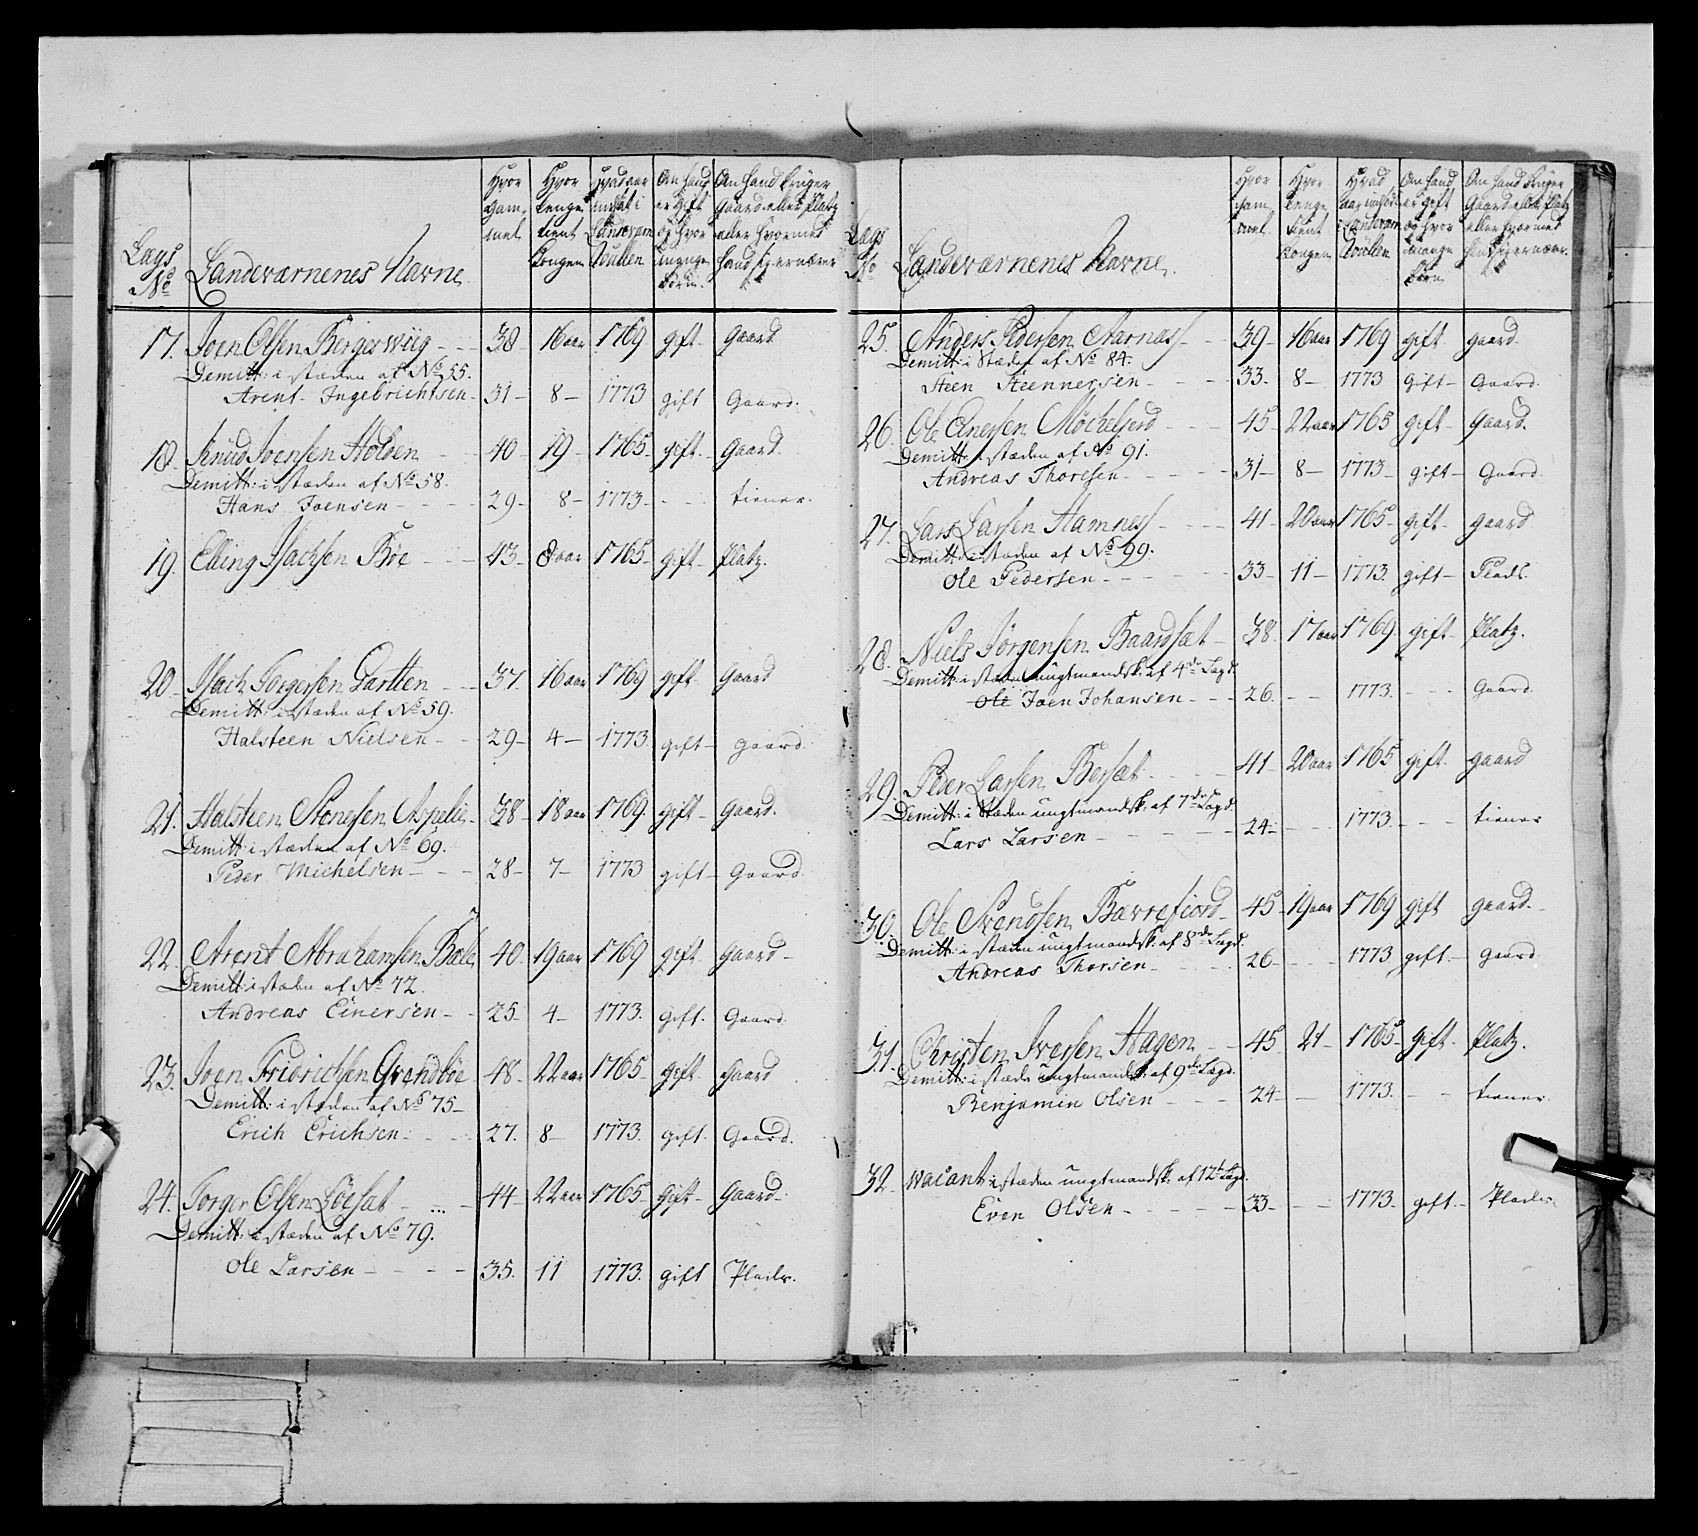 Lægs No
Landeværnenes Navne
Hvor gammel
Hvor længe tient Kongen
Hvad aar indsat i Landeværn Roullen
Om hand er gift og hvor mange Børn
Om hand bruger gaard eller Platz eller hvormed hand sig ernærer
17. Joen Olsen Bergerwiig - - 38 16 aar 1769 gift - Gaard
Demitt: i stæden af No 55.
Arent Ingebrichtsen - 31 - 8 - 1773 gift Gaard.
18. Knud Joensen Holden - 40 - 19 - 1765 - gift - Gaard
Demitt: i stæden af No 58.
Hans Joensen - - - - 29 - 8 - 1773 - - - tiener.
19. Elling Isachsen Böe - - - 43 - 8 aar 1765 - gift - Platz.
20. Isach Torgersen Gartten - - 37 - 16 aar 1769 gift - Gaard
Demitt: i stæden af No 59.
Halsteen Nielsen - - 29 - 4 - 1773 gift - Gaard
21. Halsteen Stenesen Aspelie - 38 - 18 aar 1769. gift - Gaard.
Demitt: i stæden af No 69.
Peder Michelsen - - - 28 - 7 - 1773 gift - Gaard.
22. Arent Abrahamsen 40 - 19 aar 1769 gift - Gaard -
Demitt: i stæden af No 72.
Andreas Einersen - - 25 - 4 - 1773. gift. Gaard.
23. Joen Fridrichsen Grandböe 48 - 22 aar 1765 - gift - Gaard
Demitt: i stæden af No 75 -
Erich Erichsen - - - 27. 8 - 1773. gift. Gaard.
24. Torger Olsen Löesat - ... - 44 - 22 aar 1765 - Gift - Gaard -
Demitt: i stæden af No 79.
Ole Larsen - - - - 35. 11 1773. gift Plads.
Lægs No
Landeværnenes Navne
Hvor gammel
Hvor længe tient Kongen
Hvad aar indsat i Landeværn Roullen
Om hand er gift og hvor mange Børn
Om hand bruger Gaard eller Platz eller hvormed hand sig ernærer
25. Anders Pedersen Aarnæss - - 39 - 16 aar 1769 gift - gaard.
Demitt: i Stæden af No 84.
Steen Steennersen - - - 33. 8 - 1773 Gift - Gaard.
26. Ole Einersen - - - 45 - 22 aar 1765 gift - Gaard.
Demitt: i stæden af No 91.
Andreas Thoresen - - - 31 - 8 - 1773 - gift - Gaard.
27. Lars Larsen Hamness - - - 41 - 20 aar 1765 - gift - gaard
Demitt: i stæden af No 99.
Ole Pedersen - - - - 33 - 11 - 1773. gift - Plads.
28. Niels Jörgensen Baardsæt - 38. 17 aar 1769. gift - Platz.
Demitt: i stæden ungtmandsk: af 4de Lægd.
Ole Joen Johansen - - - 26. - - 1773. - - - Gaard.
29. Peder Larsen Bessæt - - - 41 - 20 aar 1765 gift - gaard
Demitt: i Stæden ungtmandsk: af 7de Lægd.
Lars Larsen - - - - - 24 - - - - 1773. - - - tiener
30. Ole Svendsen Bærrefiord - 45 - 19 aar 1769 gift gaard -
Demitt: i stæden ungtmandsk: af 8de Lægd.
Andreas Thorsen - - - 26 - - - - 1773 gift - gaard
31. Christen Iversen Hagen - - 45 - 21 - 1765 - gift - Platz.
Demitt: i stæde ungtmandsk: af 9de Lægd.
Benjamin Olsen - - - 24 - - 1773. - - - tiener.
32. Vacant i stæden ungtmandsk: af 12te Lægd.
Even Olsen - - - - - 33 - - - 1773. gift - Plads.